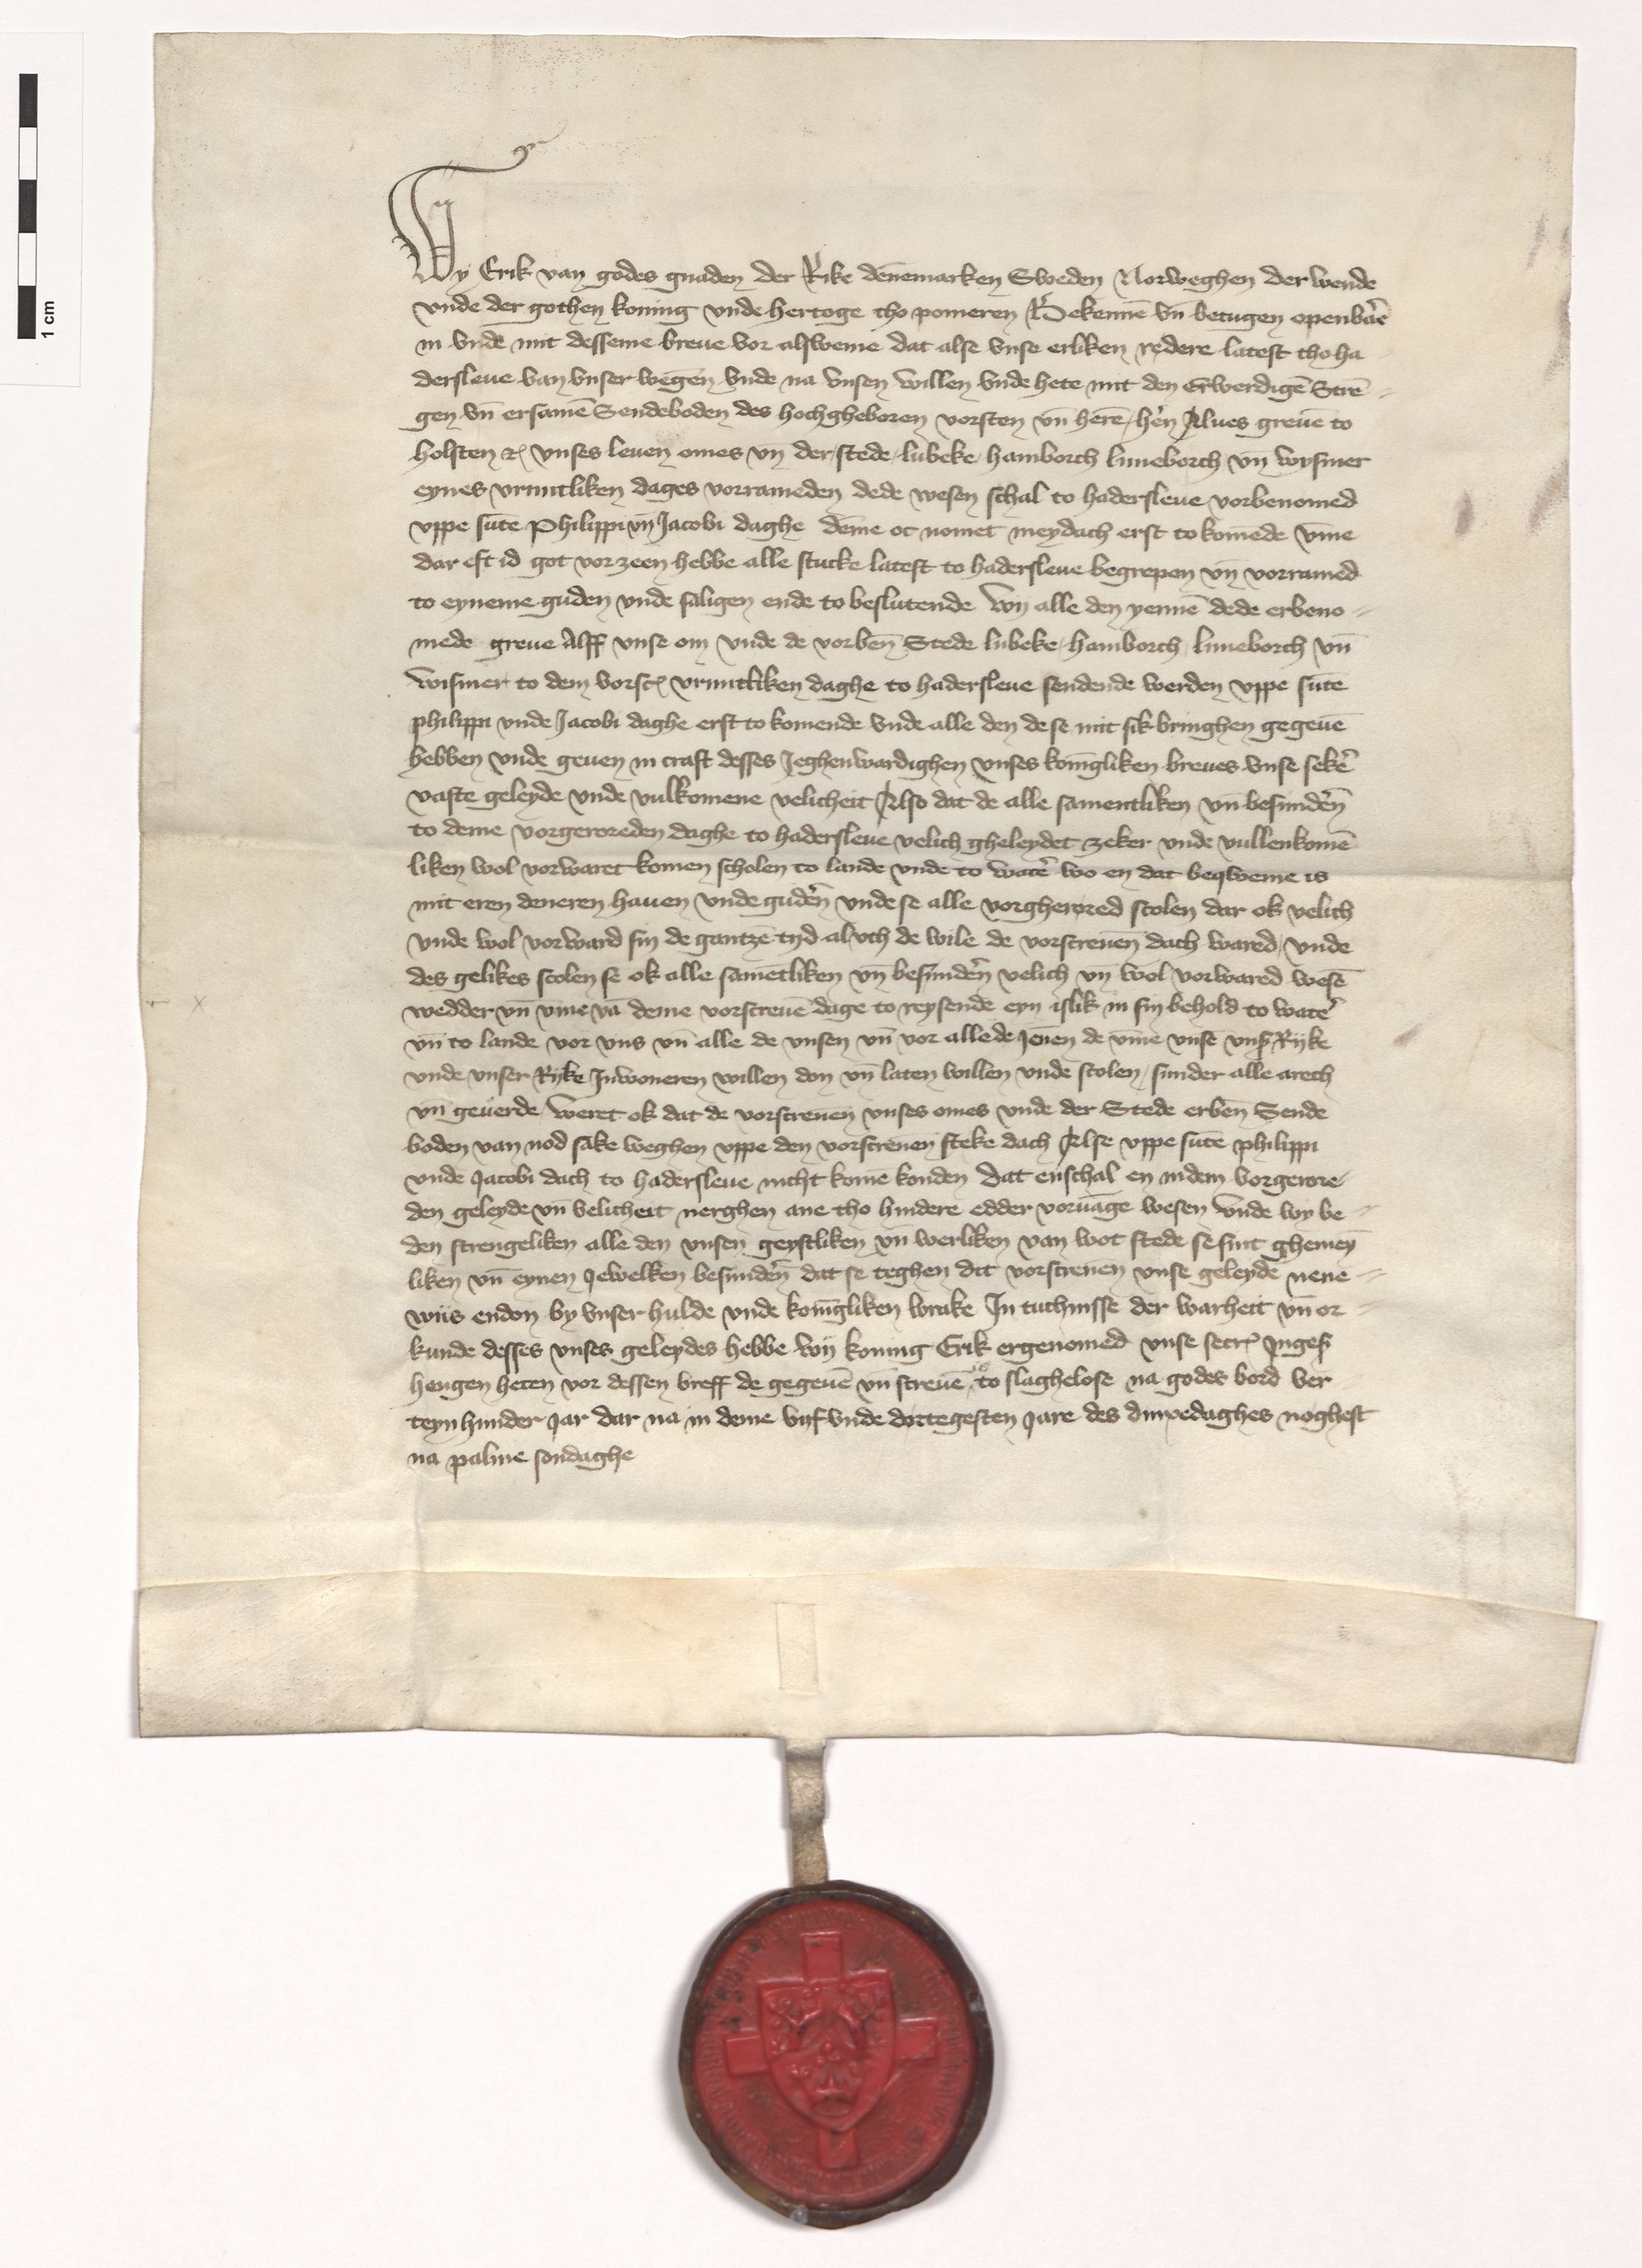 Wy Erik van godes gnaden der Rike denemarken Sweden Norweghen der wende
vnde der gothen koning vnde hertoge tho pomeren Bekennē vn̄ betugen openbaˀe
in vnde mit desseme breue vor alsweme dat alse vnse erliken redere latest tho ha
dersleue van vnser wegen vnde na vnsen willen vnde hete mit den Erwerdigē Strē
gen vn̄ ersamē Sendeboden des hochgheboren vorsten vn̄ herē hˀen Alues greuē to
holsten ⁊c̄ vnses leuen omes vn̄ der stede lubeke hamborch luneborch vn̄ wysmer
eynes vruntliken dages vorrameden dede wesen schal to hadersleue vorbenomed
vppe sūte Philippi vn̄ Jacobi daghe deme oc nomet meydach erst to komēde vm̄e
dar eft id got vorzeen hebbe alle stucke latest to hadersleue begrepen vn̄ vorramed
to eyneme guden vnde saligen ende to beslutende Wy alle den yennē dede erbeno
mede greue Alff vnse om vnde de vorben̄ Stede lubeke hamborch luneborch vn̄
wismer to dem vorscˀ vruntliken daghe to hadersleue sendende werden vppe sūte
philippi vnde Jacobi daghe erst to komende vnde alle den de se mit sik bringhen gegeuē
hebben vnde geuen in craft desses Jeghenwardighen vnses koningliken breues vnse sekˀe
vaste geleyde vnde vulkomene velicheit Also dat de alle samentliken vn̄ besundˀen
to deme vorgeroreden daghe to hadersleue velich gheleydet zeker vnde vullenkomē
liken wol vorwaret komen scholen to lande vnde to watˀe wo en dat beqweme is
mit eren deneren hauen vnde gudˀen vnde se alle vorgherored scolen dar ok velich
vnde wol vorward sin de gantzē tyd al vth de wile de vorscreuen dach wared vnde
des gelikes scolen se ok alle samētliken vn̄ besundˀen velich vn̄ wol vorwared wesē
wedder vn̄ vm̄e vā deme vorscreuē dage to reysende eyn islik in sin behold to watˀe
vn̄ to lande vor vns vn̄ alle de vnsen vn̄ vor alle de Jenen de vm̄e vnsē vnsˀ Ryke
vnde vnser Ryke Inwoneren willen don vn̄ laten willen vnde scolen sunder alle arech
vn̄ geuerde weret ok dat de vorscreuen vnses omes vnde der Stede erben̄ Sende
boden van nod sake weghen vppe den vorscreuen steke dach Alse vppe sūte philippi
vnde Jacobi dach to hadersleue nicht komē konden dat enschal en in dem vorgerore
den geleyde vn̄ velicheit nerghen ane tho hindere edder voruāge wesen vnde wy be
den strengeliken alle den vnsen geystliken vn̄ werliken van wot stede se sint ghemey
liken vn̄ eynen Jewelken besundˀen dat se teghen dit vorscreuen vnse geleyde nene
wiis endon by vnser hulde vnde koningliken wrake In tuchnisse der warheit vn̄ or
kunde desses vnses geleydes hebbe wy koning Erik ergenomed vnse secrˀ Ingesˀ
hengen heten vor dessen breff de gegeuē vn̄ screuē is to slaghelose na godes bord ver
teyn hunder Jar dar na in deme vyf vnde dortegesten Jare des dinxedaghes neghest
na palme sondaghe
1 cm
x